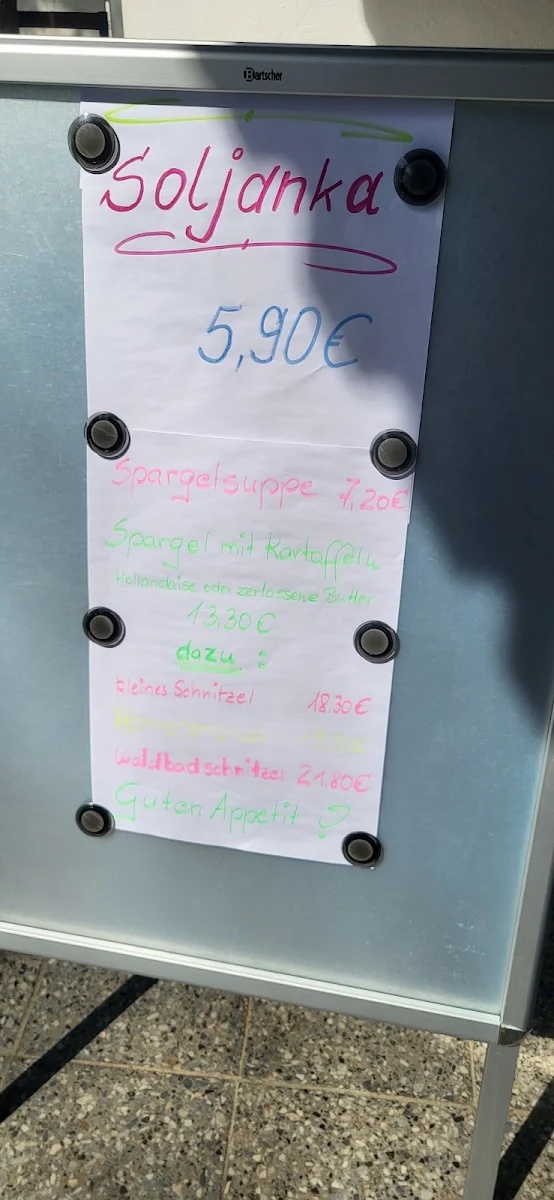 Bartscher
Soljanka
5,90€
Spargelsuppe 7,20€
Spargel mit Kartoffeln
Hollandaise oder zerlassene Butter
13.30€
dazu :
kleines Schnitzel 18.30€
Waldbadschnitzel 21.80€
Guten Appetit